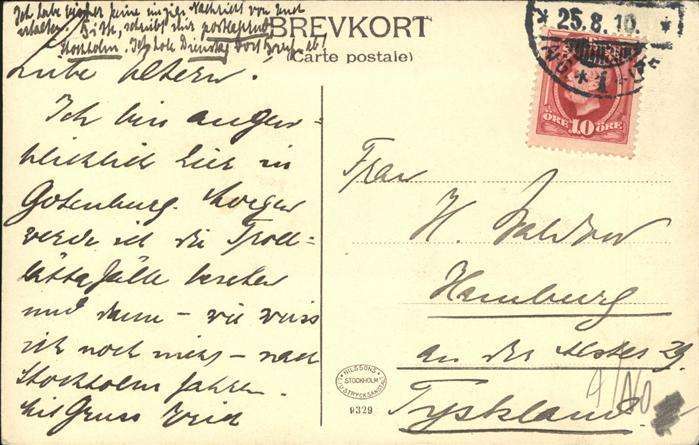 Ich habe bisher keine einzige Nachricht von Euch
erhalten. Bitte, schreibt mir postlagernd
Stockholm. Ich hole Dienstag dort Brief ab.
BREVKORT
(Carte postale)
* 25.8.10. *
* 1
ÖRE 10 ÖRE
Liebe Eltern!
Ich bin augen-
blicklich hier in
Gotenburg. Morgen
werde ich die Troll-
hättafälle besehen
und dann – wie weiss
ich noch nicht – nach
Stockholm fahren.
Mit Gruss
Frau
H.
Hamburg
an der Alster 29
Tyskland.
NILSSONS
STOCKHOLM
LJUSTRYCKSANSTALT
9329